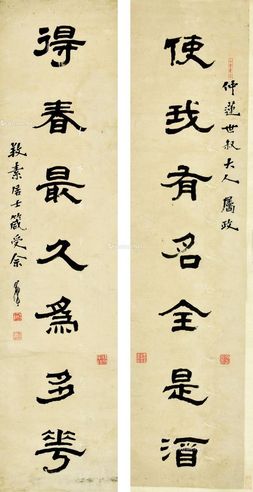 仲蓮世叔大人屬政
使我有名全是酒
得春最久為多華
素居士